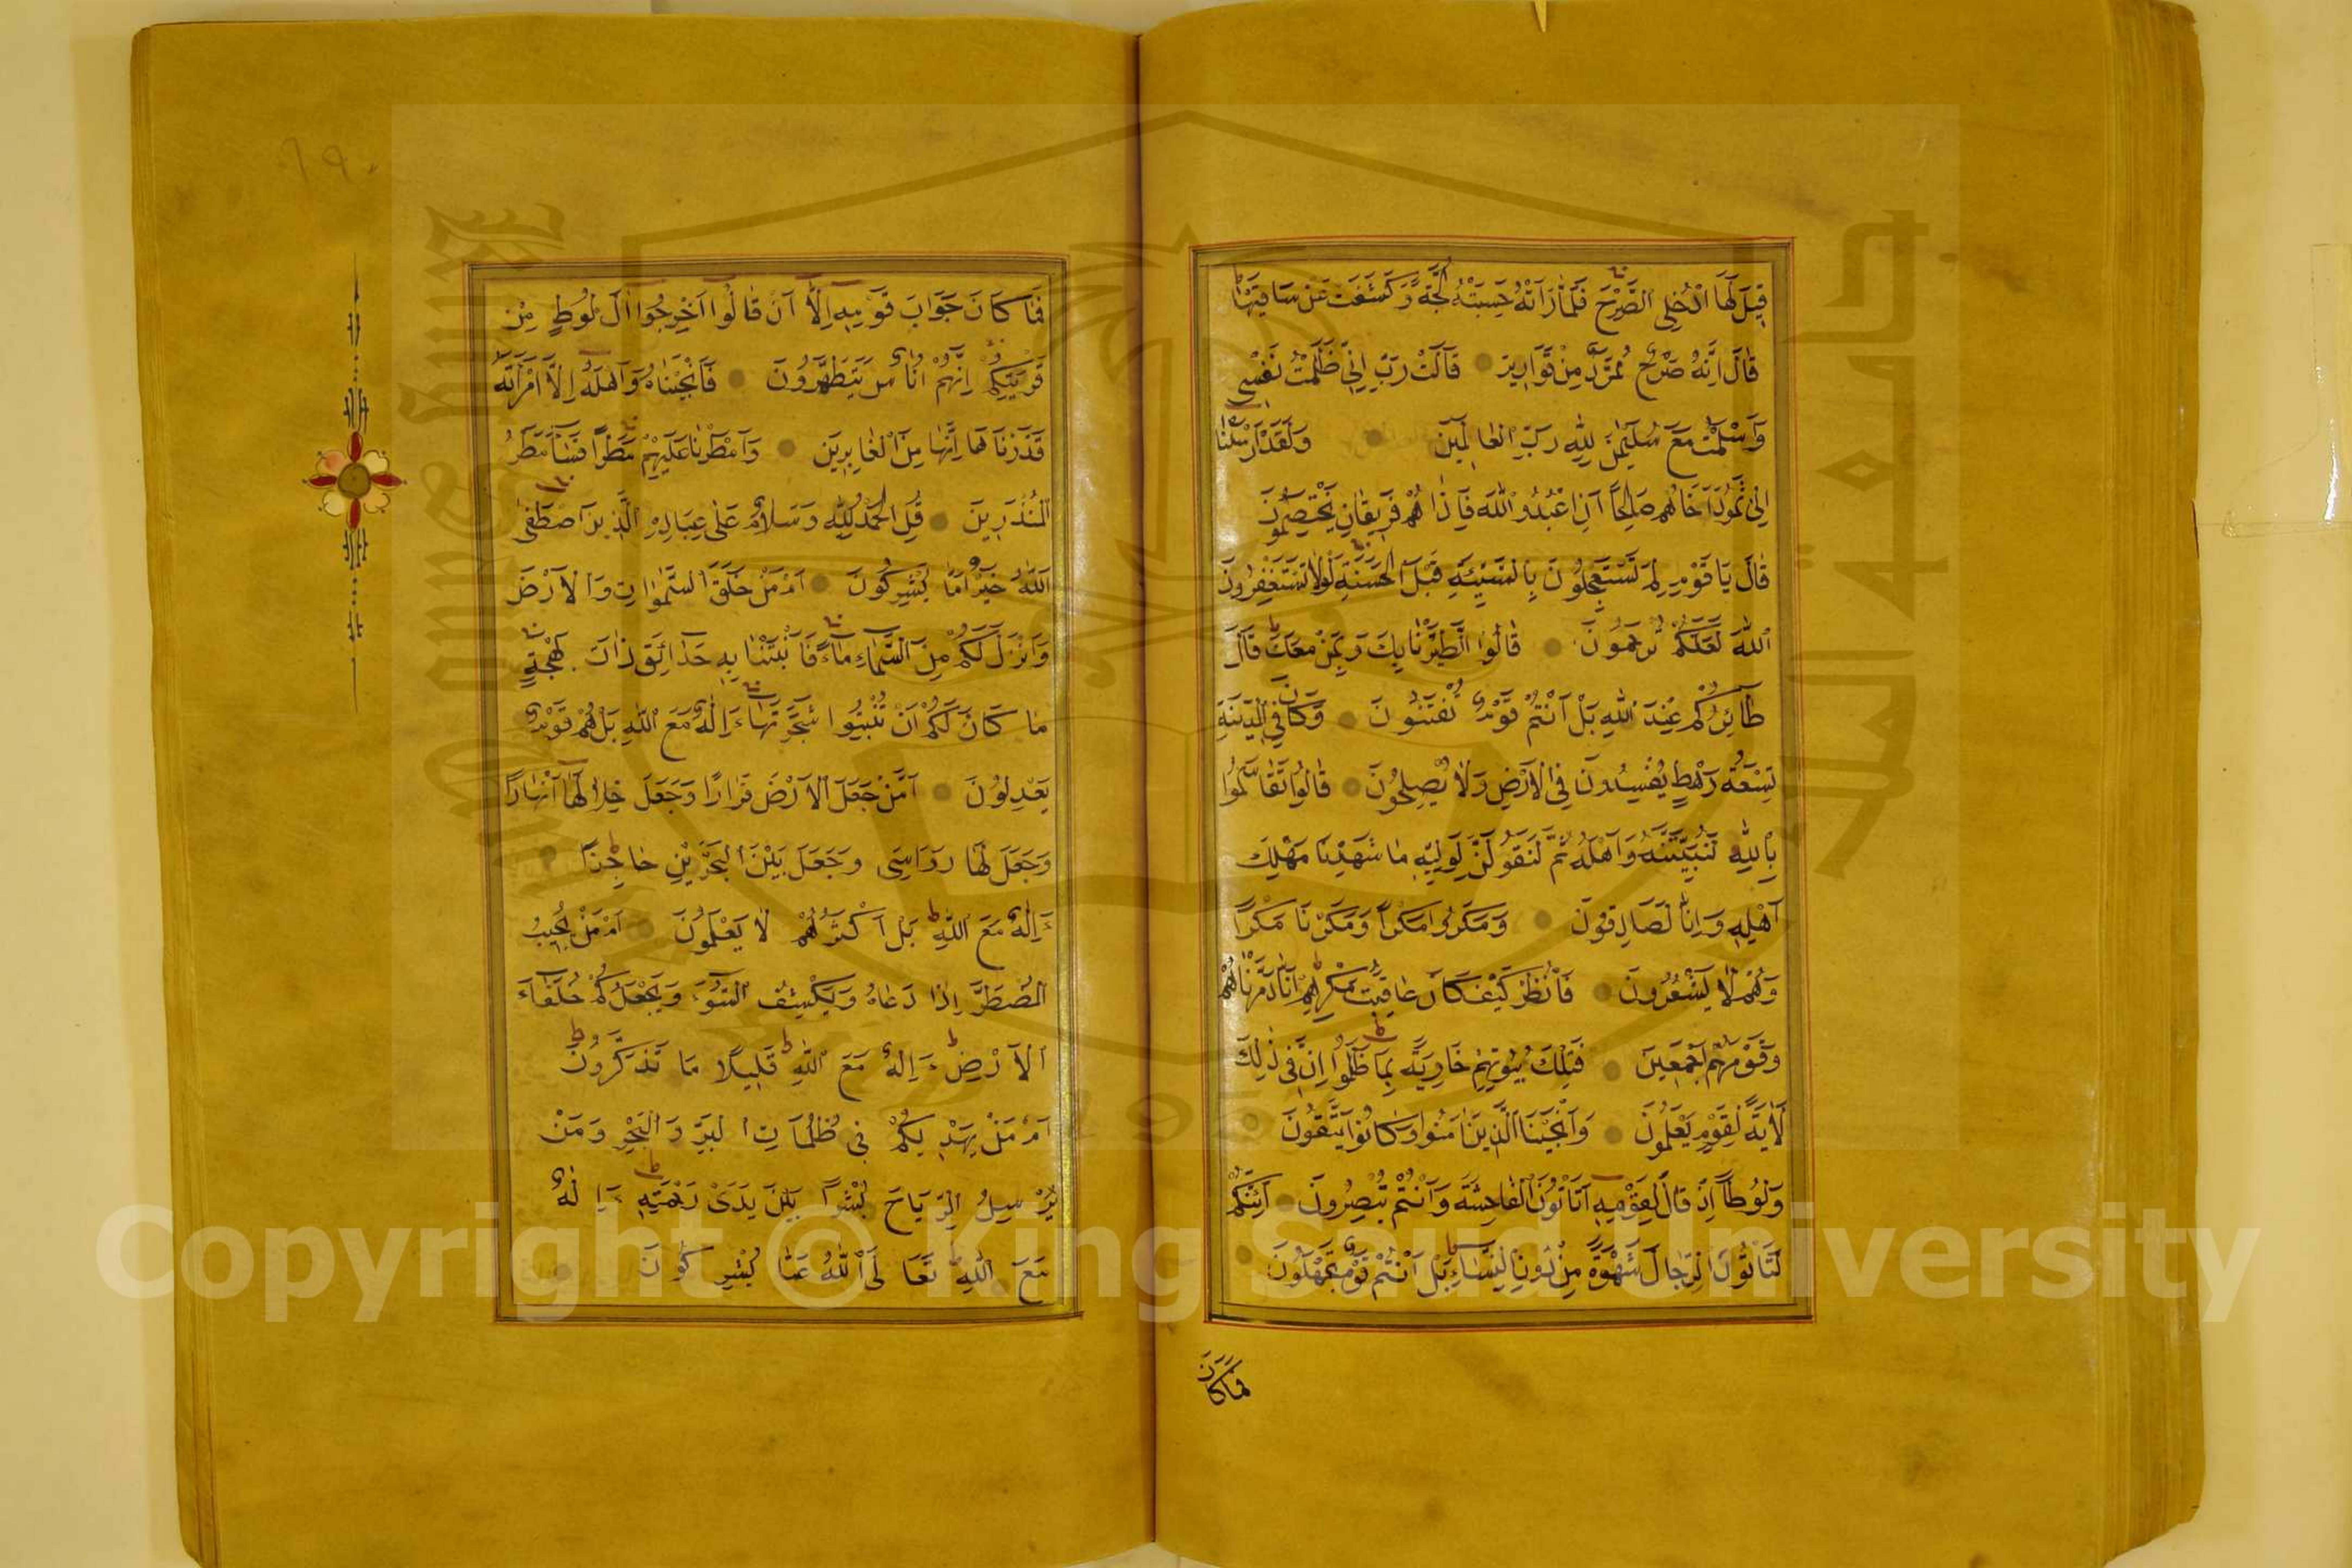 قِيلَ لَهَا ادْخُلِي الصَّرْحَ فَلَمَّا رَاَتْهُ حَسِبَتْهُ لُجَّةً وَكَشَفَتْ عَنْ سَاقَيْهَا
قَالَ اِنَّهُ صَرْحٌ مُمَرَّدٌ مِنْ قَوَارِيرَ قَالَتْ رَبِّ اِنِّي ظَلَمْتُ نَفْسِي
وَاَسْلَمْتُ مَعَ سُلَيْمٰنَ لِلّٰهِ رَبِّ الْعَالَمِينَ وَلَقَدْ اَرْسَلْنَا
اِلٰى ثَمُودَ اَخَاهُمْ صَالِحًا اَنِ اعْبُدُوا اللّٰهَ فَاِذَا هُمْ فَرِيقَانِ يَخْتَصِمُونَ
قَالَ يَا قَوْمِ لِمَ تَسْتَعْجِلُونَ بِالسَّيِّئَةِ قَبْلَ الْحَسَنَةِ لَوْلَا تَسْتَغْفِرُونَ
اللّٰهَ لَعَلَّكُمْ تُرْحَمُونَ قَالُوا اطَّيَّرْنَا بِكَ وَبِمَنْ مَعَكَ قَالَ
طَائِرُكُمْ عِنْدَ اللّٰهِ بَلْ اَنْتُمْ قَوْمٌ تُفْتَنُونَ وَكَانَ فِي الْمَدِينَةِ
تِسْعَةُ رَهْطٍ يُفْسِدُونَ فِي الْاَرْضِ وَلَا يُصْلِحُونَ قَالُوا تَقَاسَمُوا
بِاللّٰهِ لَنُبَيِّتَنَّهُ وَاَهْلَهُ ثُمَّ لَنَقُولَنَّ لِوَلِيِّهِ مَا شَهِدْنَا مَهْلِكَ
اَهْلِهِ وَاِنَّا لَصَادِقُونَ وَمَكَرُوا مَكْرًا وَمَكَرْنَا مَكْرًا
وَهُمْ لَا يَشْعُرُونَ فَانْظُرْ كَيْفَ كَانَ عَاقِبَةُ مَكْرِهِمْ اَنَّا دَمَّرْنَاهُمْ
وَقَوْمَهُمْ اَجْمَعِينَ فَتِلْكَ بُيُوتُهُمْ خَاوِيَةً بِمَا ظَلَمُوا اِنَّ فِي ذٰلِكَ
لَاٰيَةً لِقَوْمٍ يَعْلَمُونَ وَاَنْجَيْنَا الَّذِينَ اٰمَنُوا وَكَانُوا يَتَّقُونَ
وَلُوطًا اِذْ قَالَ لِقَوْمِهِ اَتَاْتُونَ الْفَاحِشَةَ وَاَنْتُمْ تُبْصِرُونَ اَئِنَّكُمْ
لَتَاْتُونَ الرِّجَالَ شَهْوَةً مِنْ دُونِ النِّسَاءِ بَلْ اَنْتُمْ قَوْمٌ تَجْهَلُونَ
فَمَا كَانَ
١٩٠
فَمَا كَانَ جَوَابَ قَوْمِهِ اِلَّا اَنْ قَالُوا اَخْرِجُوا اٰلَ لُوطٍ مِنْ
قَرْيَتِكُمْ اِنَّهُمْ اُنَاسٌ يَتَطَهَّرُونَ فَاَنْجَيْنَاهُ وَاَهْلَهُ اِلَّا امْرَاَتَهُ
قَدَّرْنَاهَا مِنَ الْغَابِرِينَ وَاَمْطَرْنَا عَلَيْهِمْ مَطَرًا فَسَاءَ مَطَرُ
الْمُنْذَرِينَ قُلِ الْحَمْدُ لِلّٰهِ وَسَلَامٌ عَلٰى عِبَادِهِ الَّذِينَ اصْطَفٰى
اللّٰهُ خَيْرٌ اَمَّا يُشْرِكُونَ اَمْ مَنْ خَلَقَ السَّمٰوَاتِ وَالْاَرْضَ
وَاَنْزَلَ لَكُمْ مِنَ السَّمَاءِ مَاءً فَاَنْبَتْنَا بِهِ حَدَائِقَ ذَاتَ بَهْجَةٍ
مَا كَانَ لَكُمْ اَنْ تُنْبِتُوا شَجَرَهَا ءَاِلٰهٌ مَعَ اللّٰهِ بَلْ هُمْ قَوْمٌ
يَعْدِلُونَ اَمَّنْ جَعَلَ الْاَرْضَ قَرَارًا وَجَعَلَ خِلَالَهَا اَنْهَارًا
وَجَعَلَ لَهَا رَوَاسِىَ وَجَعَلَ بَيْنَ الْبَحْرَيْنِ حَاجِزًا
ءَاِلٰهٌ مَعَ اللّٰهِ بَلْ اَكْثَرُهُمْ لَا يَعْلَمُونَ اَمْ مَنْ يُجِيبُ
الْمُضْطَرَّ اِذَا دَعَاهُ وَيَكْشِفُ السُّوءَ وَيَجْعَلُكُمْ خُلَفَاءَ
الْاَرْضِ ءَاِلٰهٌ مَعَ اللّٰهِ قَلِيلًا مَا تَذَكَّرُونَ
اَمْ مَنْ يَهْدِيكُمْ فِي ظُلُمَاتِ الْبَرِّ وَالْبَحْرِ وَمَنْ
يُرْسِلُ الرِّيَاحَ بُشْرًا بَيْنَ يَدَىْ رَحْمَتِهِ ءَاِلٰهٌ
مَعَ اللّٰهِ تَعَالَى اللّٰهُ عَمَّا يُشْرِكُونَ
Copyright © King Saud University